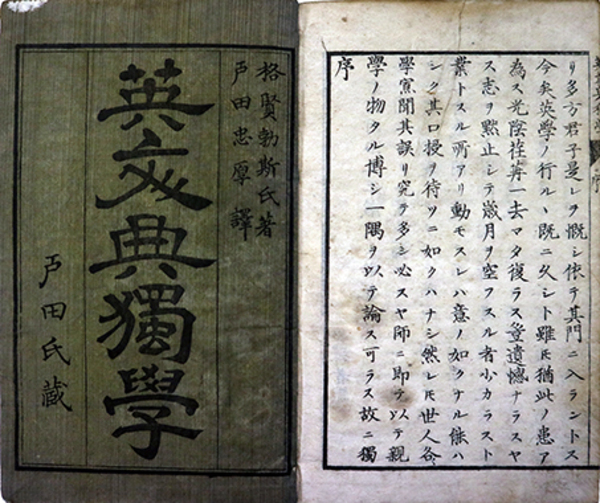 格賢勃斯氏著
戸田忠厚譯
英文典獨學
戸田氏藏
序
學ノ物タル博シ一隅ヲ以テ論ス可ラス故ニ獨
學寡聞其誤リ究テ多シ必スヤ師ニ即テ以テ親
シク其口授ヲ待ツニ如クハナシ然レ𪜈世人各
業トスル所アリ動モスレハ意ノ如クナル能ハ
ス志ヲ黙止シテ歳月ヲ空フスル者小カラスト
為ス光陰荏苒一去マタ復ラス豈遺憾ナラスヤ
今矣英學ノ行ルヽ既ニ久シト雖𪜈猶此ノ患ア
リ多方君子是レヲ慨シ依テ其門ニ入ラントス